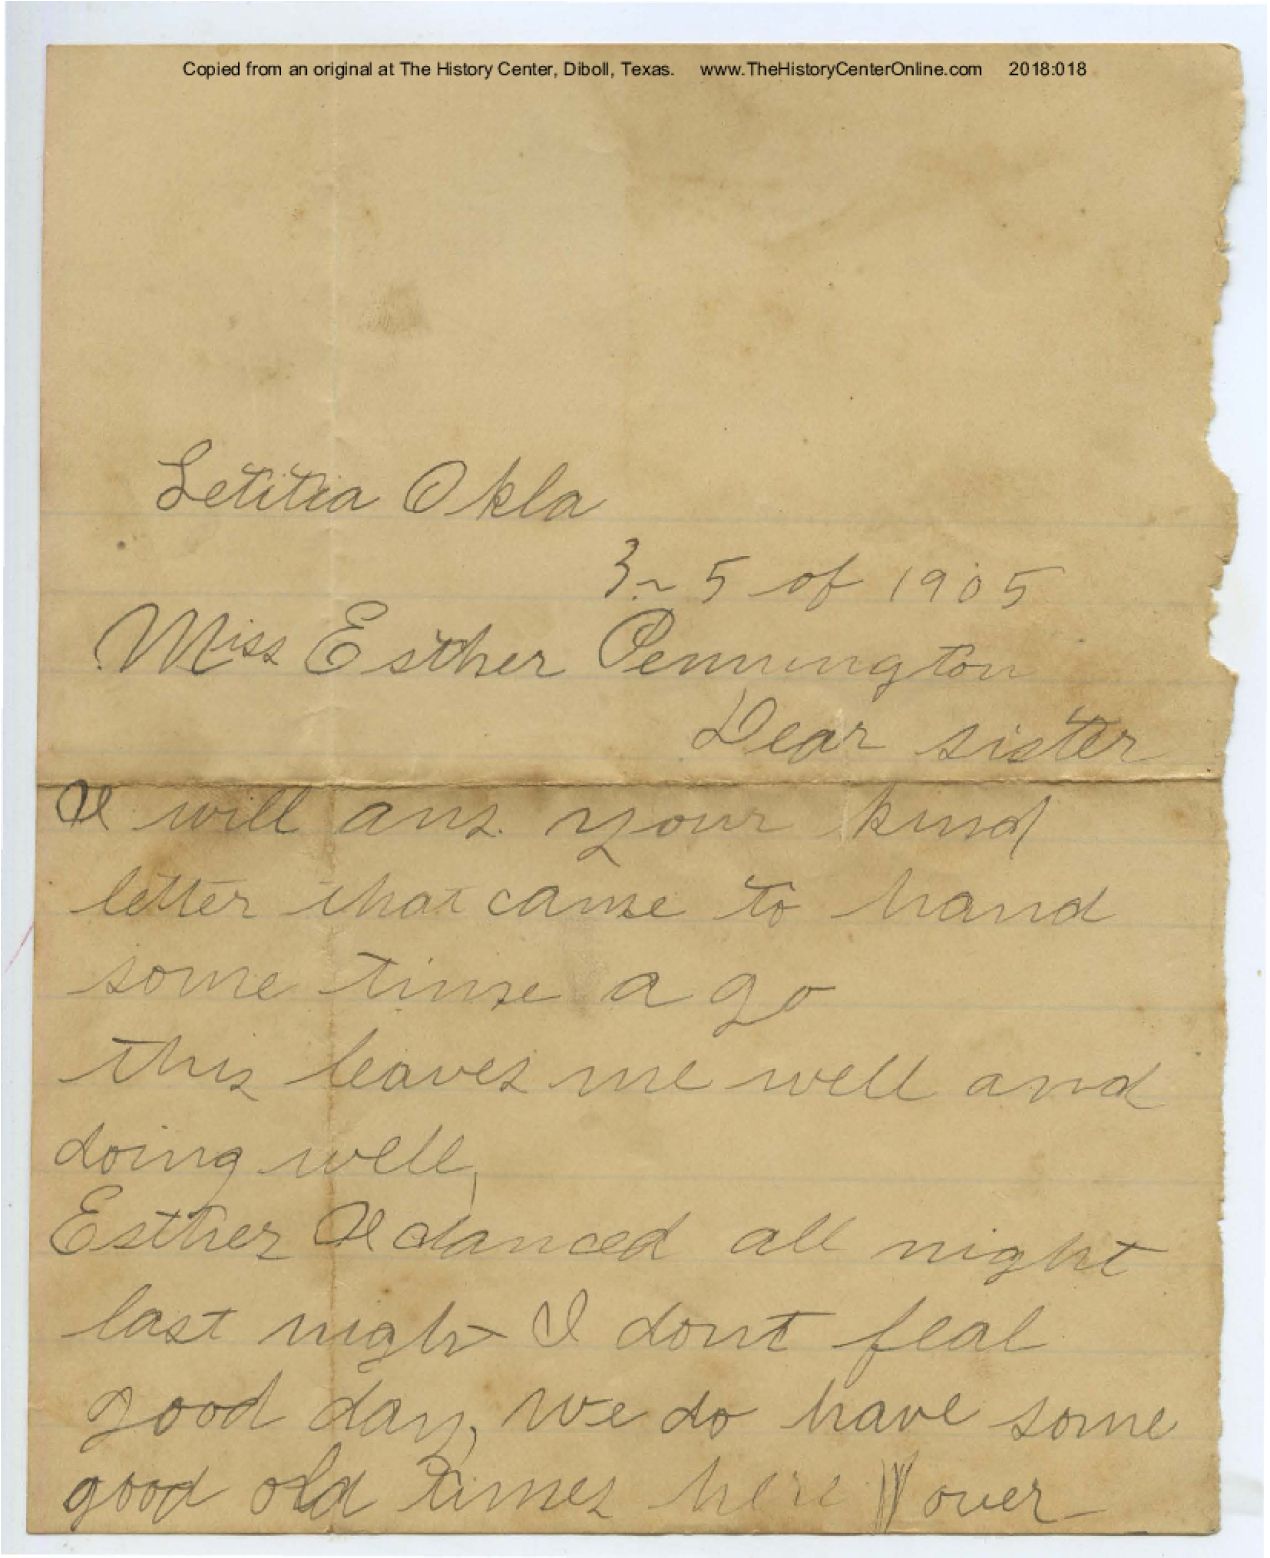 Copied from an original at The History Center, Diboll, Texas. www.TheHistoryCenterOnline.com 2018:018
Letitia Okla
3~5 of 1905
Miss Esther Pennington
Dear sister
I will ans. your kind
letter that came to hand
some time a go
this leaves me well and
doing well,
Esther I danced all night
last night I dont feal
good day, we do have some
good old times here over